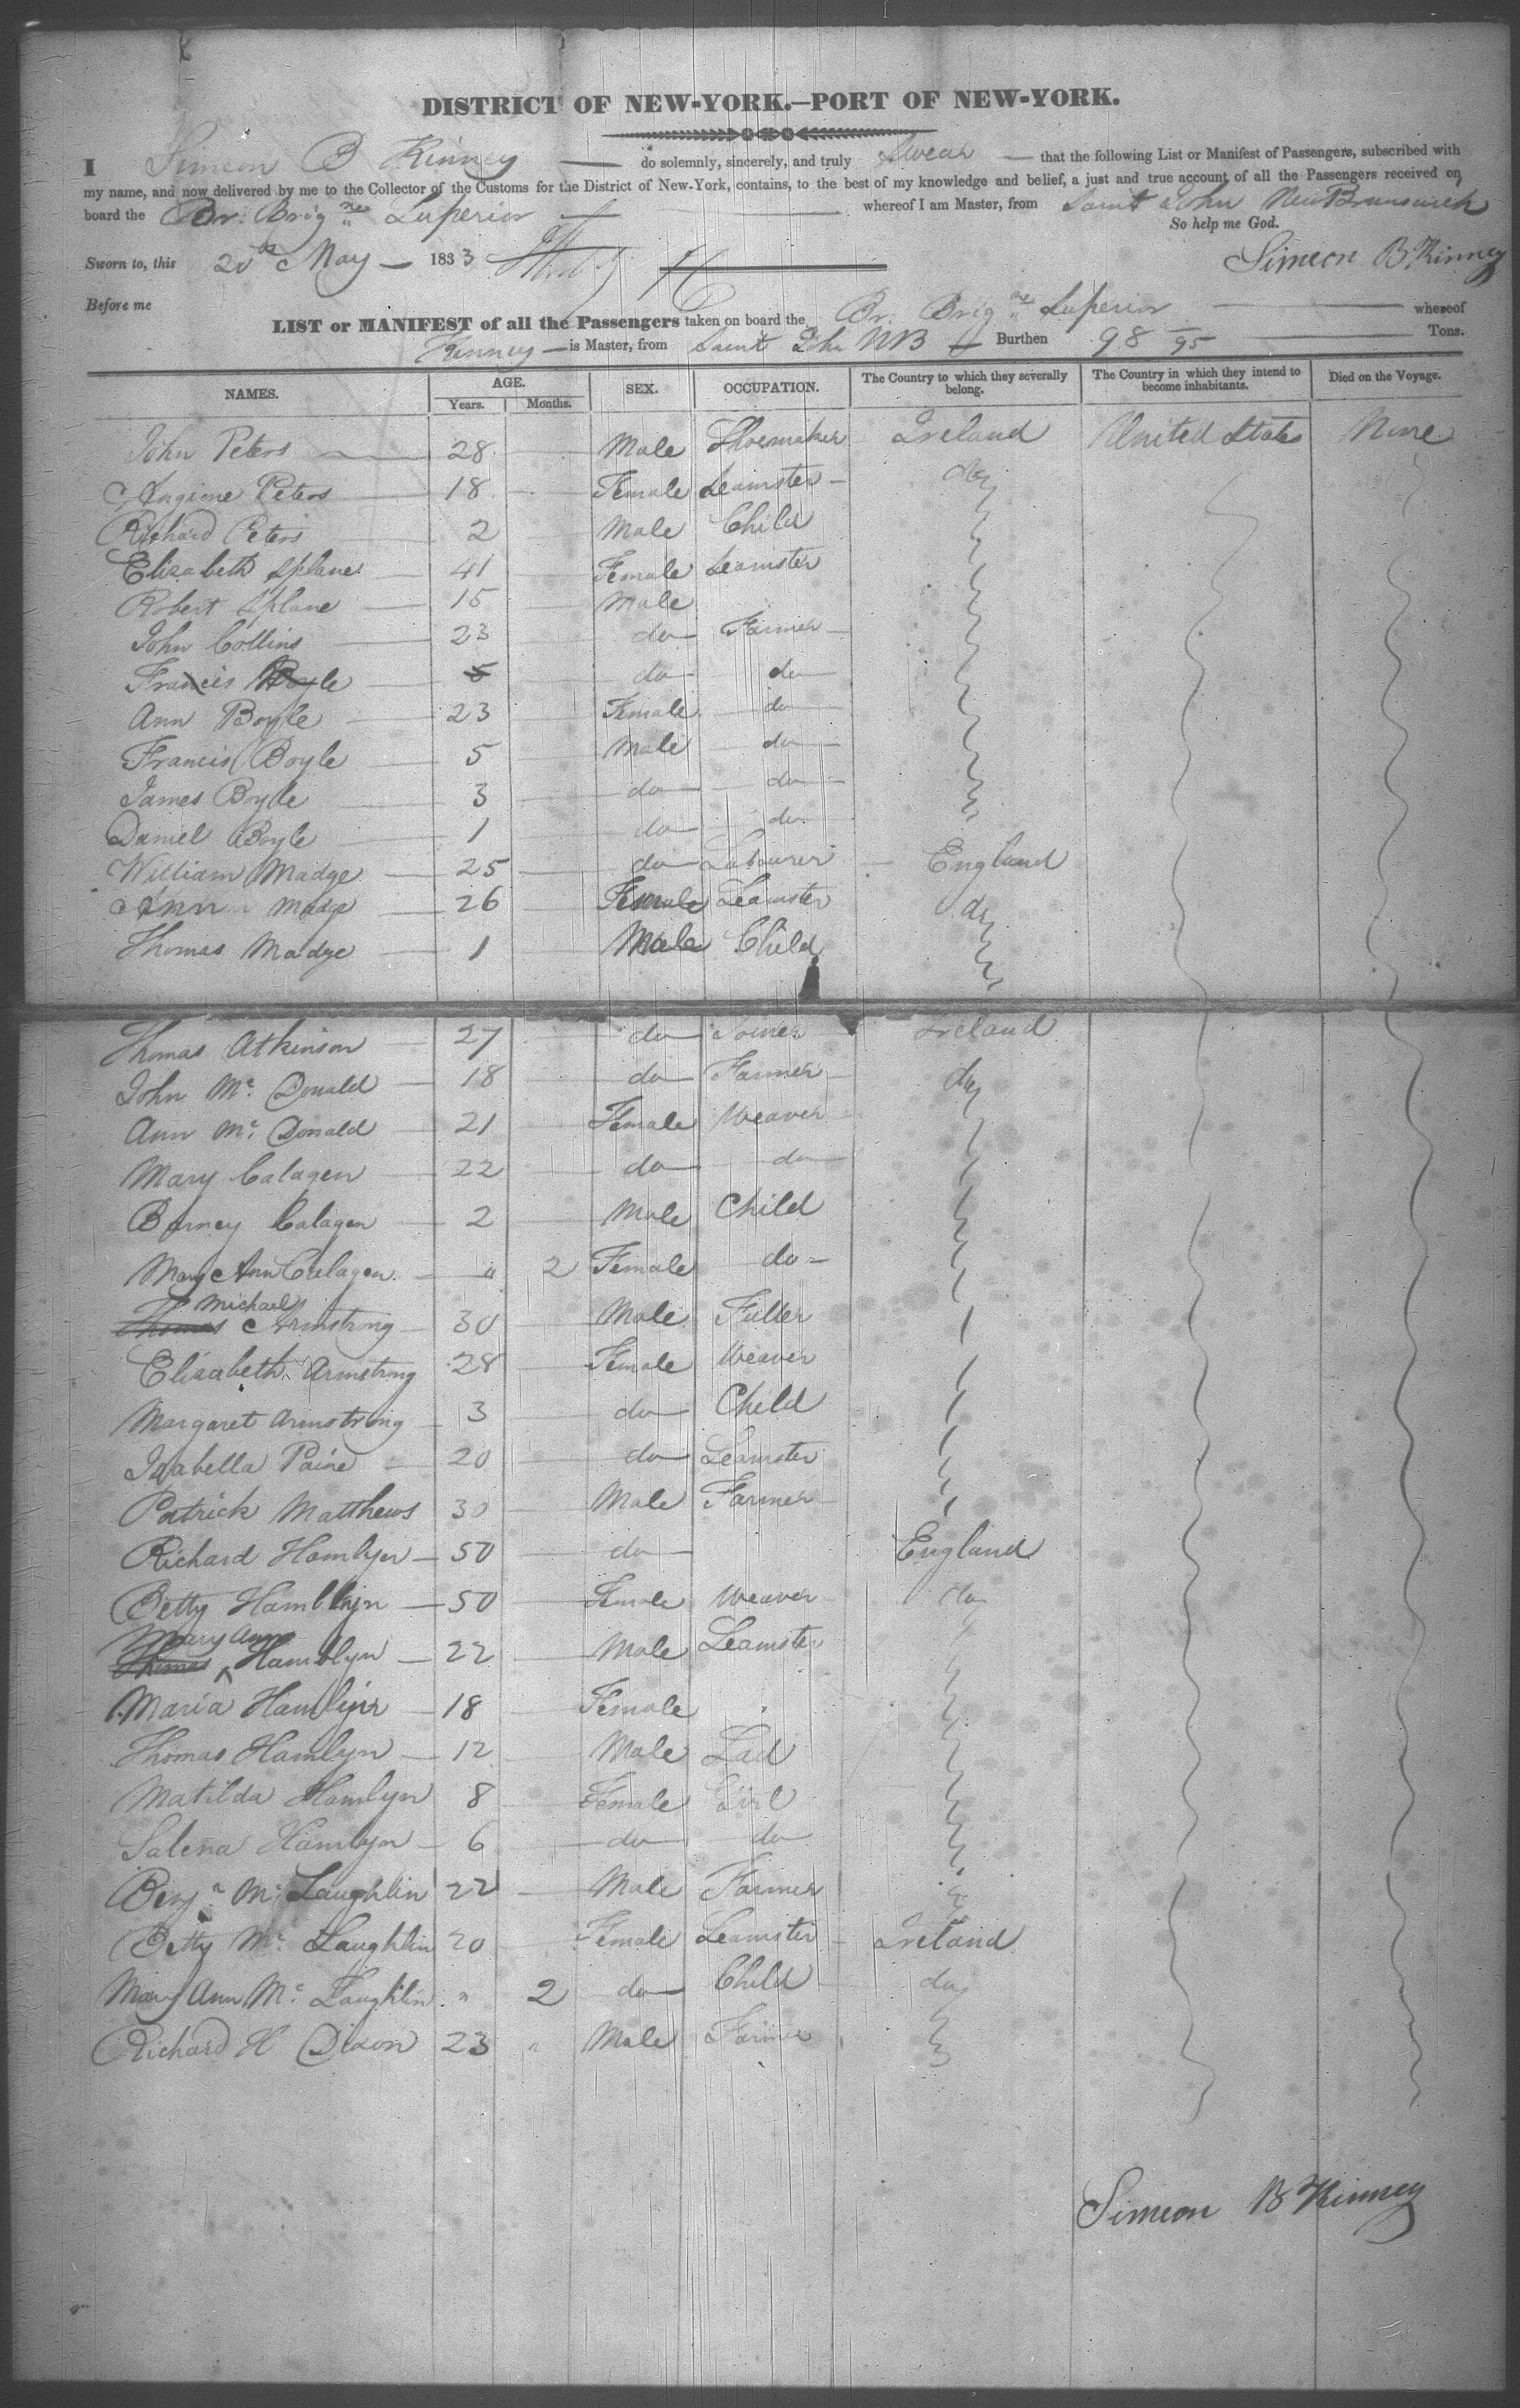 DISTRICT OF NEW-YORK.—PORT OF NEW-YORK.
I Simeon B Kinney do solemnly, sincerely, and truly Swear that the following List or Manifest of Passengers, subscribed with
my name, and now delivered by me to the Collector of the Customs for the District of New-York, contains, to the best of my knowledge and belief, a just and true account of all the Passengers received on
board the Br. Brig ne Superior whereof I am Master, from Saint John New Brunswick
So help me God.
Sworn to, this 20th May 1833
Simeon B. Kinney
Before me
LIST or MANIFEST of all the Passengers taken on board the Br. Brig ne Superior whereof
Kinney is Master, from Saint Jhn NB Burthen 98 95 Tons.
NAMES. AGE. Years. Months. SEX. OCCUPATION. The Country to which they severally belong. The Country in which they intend to become inhabitants. Died on the Voyage.
John Peters 28 Male Shoemaker Ireland United States None
Peters 18 Female Seamster do
Richard Peters 2 Male Child
Elizabeth Splane 41 Female Seamster
Robert Splane 15 Male
John Collins 23 do Farmer
Francis Boyle 5 do do
Ann Boyle 23 Female do
Francis Boyle 5 Male do
James Boyle 3 do do
Daniel Boyle 1 do do
William Madge 25 do Labourer England
Ann Madge 26 Female Seamster do
Thomas Madge 1 Male Child
Thomas Atkinson 27 do Joiner Ireland
John Mc Donald 18 do Farmer do
Ann Mc Donald 21 Female Weaver
Mary Calagen 22 do do
Barney Calagen 2 Male Child
Mary Ann Calagen " 2 Female do
Michael
Thomas Armstrong 30 Male Fuller
Elizabeth Armstrong 28 Female Weaver
Margaret Armstrong 3 do Child
Isabella Paine 20 do Seamster
Patrick Matthews 30 Male Farmer
Richard Hamlyn 50 do England
Betty Hamblyn 50 Female Weaver do
Mary Ann
Thomas Hamblyn 22 Male Seamster
Maria Hamlyn 18 Female
Thomas Hamlyn 12 Male Lad
Matilda Hamlyn 8 Female Girl
Salena Hamlyn 6 do do
Benjn Mc Laughlin 22 Male Farmer
Betty Mc Laughlin 20 Female Seamster Ireland
Mary Ann Mc Laughlin " 2 do Child do
Richard H Dixon 23 " Male Farmer
Simeon B Kinney